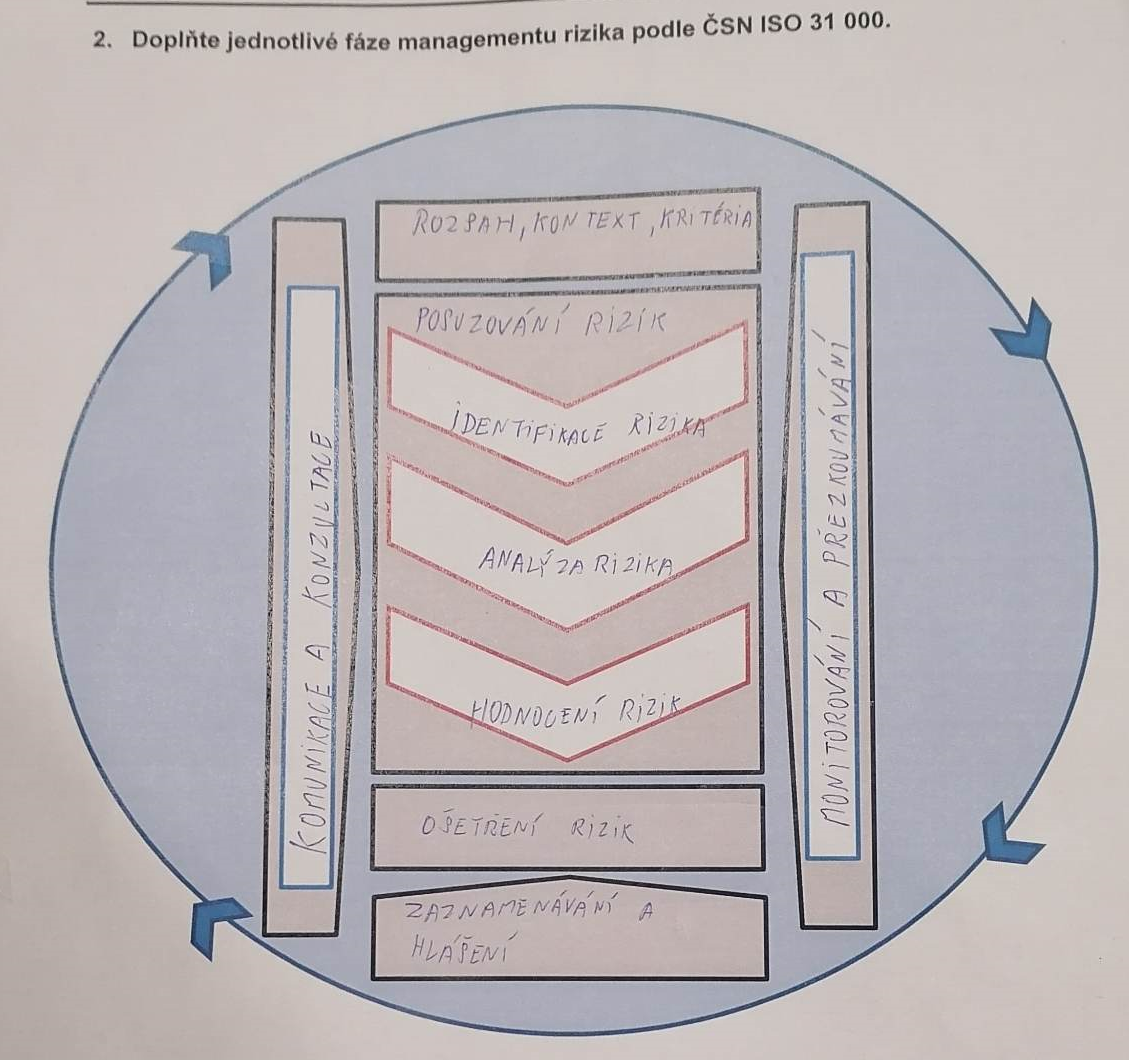 2. Doplňte jednotlivé fáze managementu rizika podle ČSN ISO 31 000.
ROZSAH, KONTEXT, KRITÉRIA
POSUZOVÁNÍ RIZIK
IDENTIFIKACE RIZIKA
ANALÝZA RIZIKA
HODNOCENÍ RIZIK
OŠETŘENÍ RIZIK
ZAZNAMENÁVÁNÍ A
HLÁŠENÍ
KOMUNIKACE A KONZULTACE
MONITOROVÁNÍ A PŘEZKOUMÁVÁNÍ